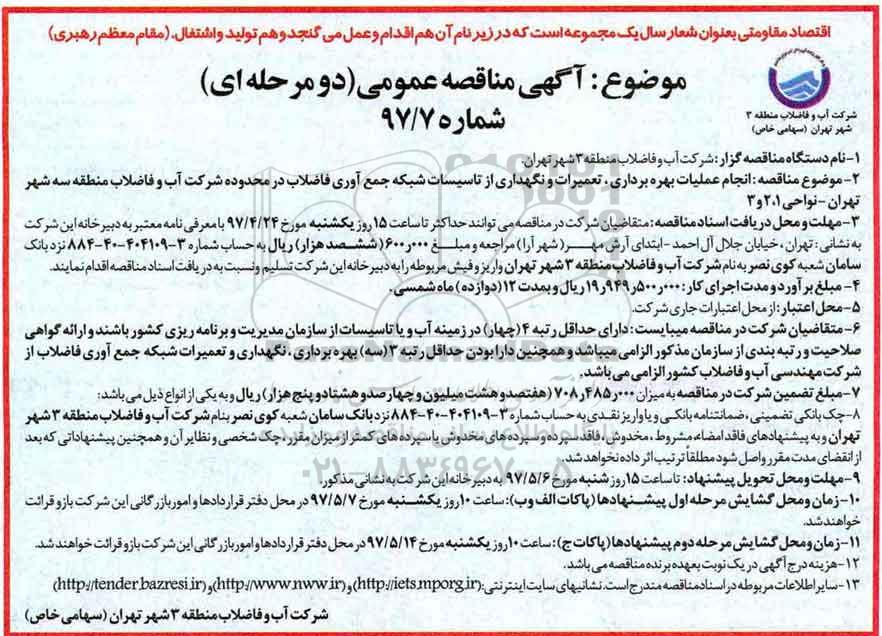 اقتصاد مقاومتی بعنوان شعار سال یک مجموعه است که در زیر نام آن هم اقدام و عمل می گنجد و هم تولید و اشتغال. (مقام معظم رهبری)
موضوع : آگهی مناقصه عمومی (دو مرحله ای)
شماره ۹۷/۷
شرکت آب و فاضلاب منطقه ۳
شهر تهران (سهامی خاص)
۱-نام دستگاه مناقصه گزار : شرکت آب و فاضلاب منطقه ۳ شهر تهران.
۲-موضوع مناقصه : انجام عملیات بهره برداری ، تعمیرات و نگهداری از تاسیسات شبکه جمع آوری فاضلاب در محدوده شرکت آب و فاضلاب منطقه سه شهر
تهران -نواحی ۲،۱ و ۳
۳-مهلت و محل دریافت اسناد مناقصه : متقاضیان شرکت در مناقصه می توانند حداکثر تا ساعت ۱۵ روز یکشنبه مورخ ۹۷/۴/۲۴ با معرفی نامه معتبر به دبیرخانه این شرکت
به نشانی : تهران ، خیابان جلال آل احمد -ابتدای آرش مهر ( شهر آرا ) مراجعه و مبلغ ۶۰۰٫۰۰۰ ( ششصد هزار ) ریال به حساب شماره ۳-۴۰۴۱۰۹-۴۰-۸۸۴ نزد بانک
سامان شعبه کوی نصر به نام شرکت آب و فاضلاب منطقه ۳ شهر تهران واریز و فیش مربوطه را به دبیرخانه این شرکت تسلیم و نسبت به دریافت اسناد مناقصه اقدام نمایند.
۴- مبلغ برآورد و مدت اجرای کار : ۱۹٫۹۴۹٫۵۰۰٫۰۰۰ ریال و بمدت ۱۲ (دوازده) ماه شمسی.
۵-محل اعتبار : از محل اعتبارات جاری شرکت.
۶- متقاضیان شرکت در مناقصه میبایست : دارای حداقل رتبه ۴ (چهار) در زمینه آب و یا تاسیسات از سازمان مدیریت و برنامه ریزی کشور باشند و ارائه گواهی
صلاحیت و رتبه بندی از سازمان مذکور الزامی میباشد و همچنین دارا بودن حداقل رتبه ۳ (سه) بهره برداری ، نگهداری و تعمیرات شبکه جمع آوری فاضلاب از
شرکت مهندسی آب و فاضلاب کشور الزامی می باشد.
۷-مبلغ تضمین شرکت در مناقصه به میزان ۷۰۸٫۴۸۵٫۰۰۰ (هفتصد و هشت میلیون و چهارصد و هشتاد و پنج هزار) ریال و به یکی از انواع ذیل می باشد:
۸-چک بانکی تضمینی ، ضمانتنامه بانکی و یا واریز نقدی به حساب شماره ۳-۴۰۴۱۰۹-۴۰-۸۸۴ نزد بانک سامان شعبه کوی نصر بنام شرکت آب و فاضلاب منطقه ۳ شهر
تهران و به پیشنهادهای فاقد امضاء، مشروط ، مخدوش ، فاقد سپرده و سپرده های مخدوش یا سپرده های کمتر از میزان مقرر، چک شخصی و نظایر آن و همچنین پیشنهاداتی که بعد
از انقضای مدت مقرر واصل شود مطلقاً ترتیب اثر داده نخواهد شد.
۹-مهلت و محل تحویل پیشنهاد : تا ساعت ۱۵ روز شنبه مورخ ۹۷/۵/۶ به دبیرخانه این شرکت به نشانی مذکور.
۱۰-زمان و محل گشایش مرحله اول پیشنهادها (پاکات الف و ب): ساعت ۱۰ روز یکشنبه مورخ ۹۷/۵/۷ در محل دفتر قراردادها و امور بازرگانی این شرکت باز و قرائت
خواهند شد.
۱۱-زمان و محل گشایش مرحله دوم پیشنهادها (پاکات ج) : ساعت ۱۰ روز یکشنبه مورخ ۹۷/۵/۱۴ در محل دفتر قراردادها و امور بازرگانی این شرکت باز و قرائت خواهند شد.
۱۲-هزینه درج آگهی در یک نوبت بعهده برنده مناقصه می باشد.
۱۳-سایر اطلاعات مربوطه در اسناد مناقصه مندرج است. نشانیهای سایت اینترنتی: (http://iets.mporg.ir) و (http://www.nww.ir) و (http://tender.bazresi.ir)
شرکت آب و فاضلاب منطقه ۳ شهر تهران (سهامی خاص)
۰۲۱-۸۸۳۴۹۶۷۰-۵